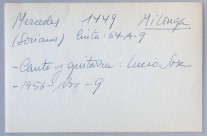 Mercedes 1449 Milonga
(Soriano) Cinta: 64-A-9
- Canto y guitarra: Lucio Sosa
- 1956 - Nov - 9